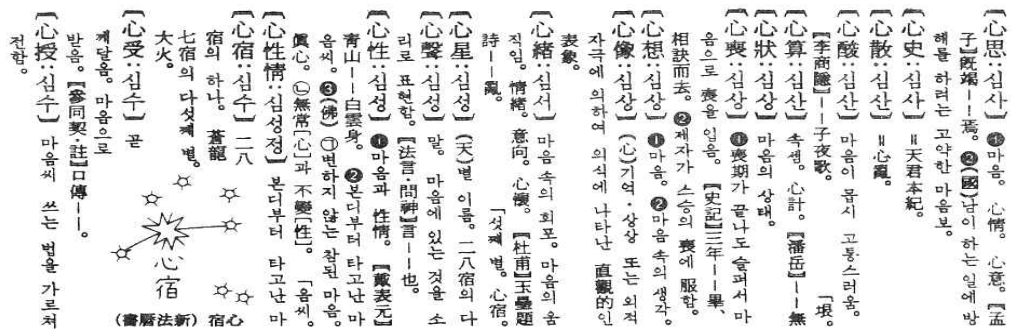 【心思:심사】 ❶마음. 心情. 心意. 【孟
子】旣竭——焉. ❷(國)남이 하는 일에 방
해를 하려는 고약한 마음보.
【心史:심사】 =天君本紀.
【心散:심산】 =心亂.
【心酸:심산】 마음이 몹시 고통스러움.
【李商隱】——子夜歌. 「垠.
【心算:심산】 속셈. 心計. 【潘岳】——無
【心狀:심상】 마음의 상태.
【心喪:심상】 ❶喪期가 끝나도 슬퍼서 마
음으로 喪을 입음. 【史記】三年——畢,
相訣而去. ❷제자가 스승의 喪에 服함.
【心想:심상】 ❶마음. ❷마음 속의 생각.
【心像:심상】 (心)기억·상상 또는 외적
자극에 의하여 의식에 나타난 直觀的인
表象.
【心緖:심서】 마음 속의 회포. 마음의 움
직임. 情緖. 意向. 心懷. 【杜甫】玉壘題
詩——亂. 「섯째 별. 心宿.
【心星:심성】 (天)별 이름. 二八宿의 다
【心聲:심성】 말. 마음에 있는 것을 소
리로 표현함. 【法言·問神】言——也.
【心性:심성】 ❶마음과 性情. 【戴表元】
靑山——白雲身. ❷본디부터 타고난 마
음씨. ❸(佛) ㉠변하지 않는 참된 마음.
眞心. ㉡無常【心】과 不變【性】. 「음씨.
【心性情:심성정】 본디부터 타고난 마
【心宿:심수】 二八
宿의 하나. 蒼龍
七宿의 다섯째 별.
大火.
【心受:심수】 곧
깨달음. 마음으로
받음. 【參同契·註】口傳——.
【心授:심수】 마음씨 쓰는 법을 가르쳐
전함.
心宿
心宿 (新法曆書)